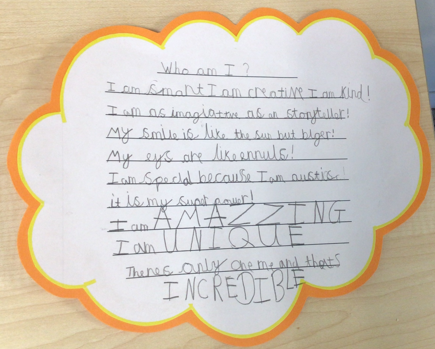 Who am I?
I am smart I am creative I am kind!
I am as imagiative as an storyteller!
My smile is like the sun but biger!
My eys are like emruls!
I am special because I am autistic!
it is my super power!
I am AMAZZING
I am UNIQUE
Theres only one me and thats
INCREDIBLE